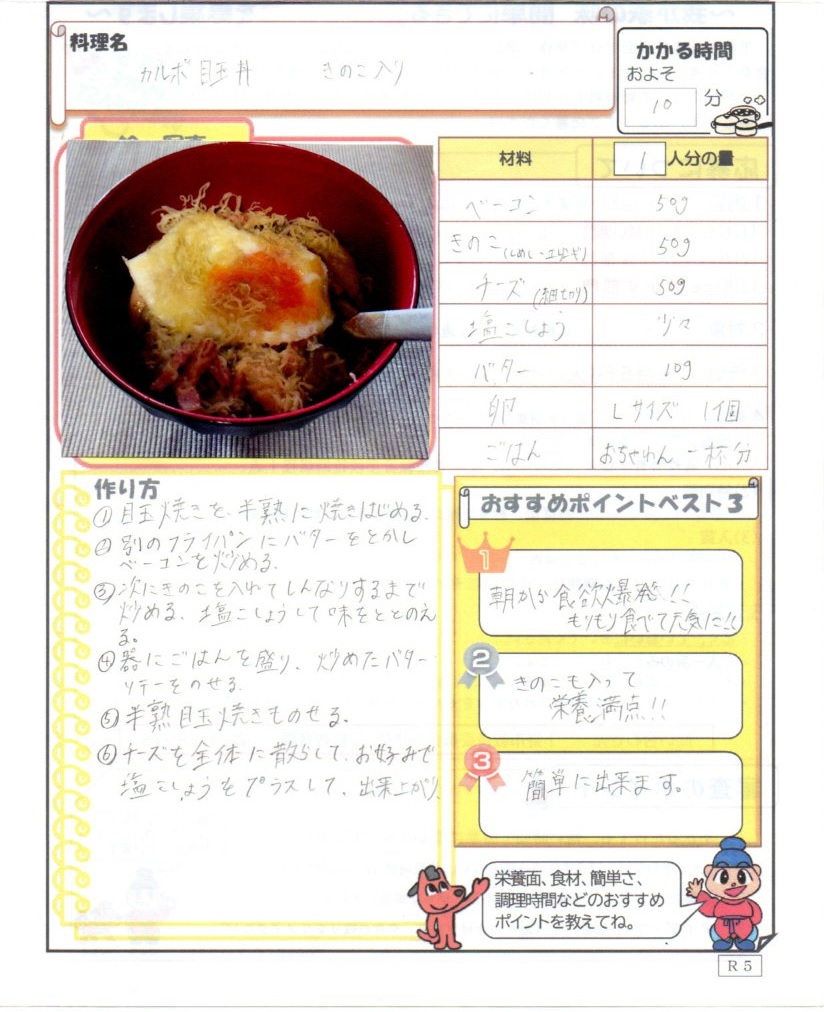 料理名
カルボ目玉丼 きのこ入り
かかる時間
およそ
10 分
材料 1 人分の量
ベーコン 50g
きのこ(しめじ・エリンギ) 50g
チーズ(細切り) 50g
塩こしょう 少々
バター 10g
卵 Lサイズ 1個
ごはん おちゃわん 一杯分
作り方
①目玉焼きを、半熟に焼きはじめる。
②別のフライパンにバターをとかし
ベーコンを炒める。
③次にきのこを入れてしんなりするまで
炒める、塩こしょうして味をととのえ
る。
④器にごはんを盛り、炒めたバター
ソテーをのせる。
⑤半熟目玉焼きものせる。
⑥チーズを全体に散らして、お好みで
塩こしょうをプラスして、出来上がり。
おすすめポイントベスト3
1
朝から食欲爆発!!
もりもり食べて元気に!!
2
きのこも入って
栄養満点!!
3
簡単に出来ます。
栄養面、食材、簡単さ、
調理時間などのおすすめ
ポイントを教えてね。
R5